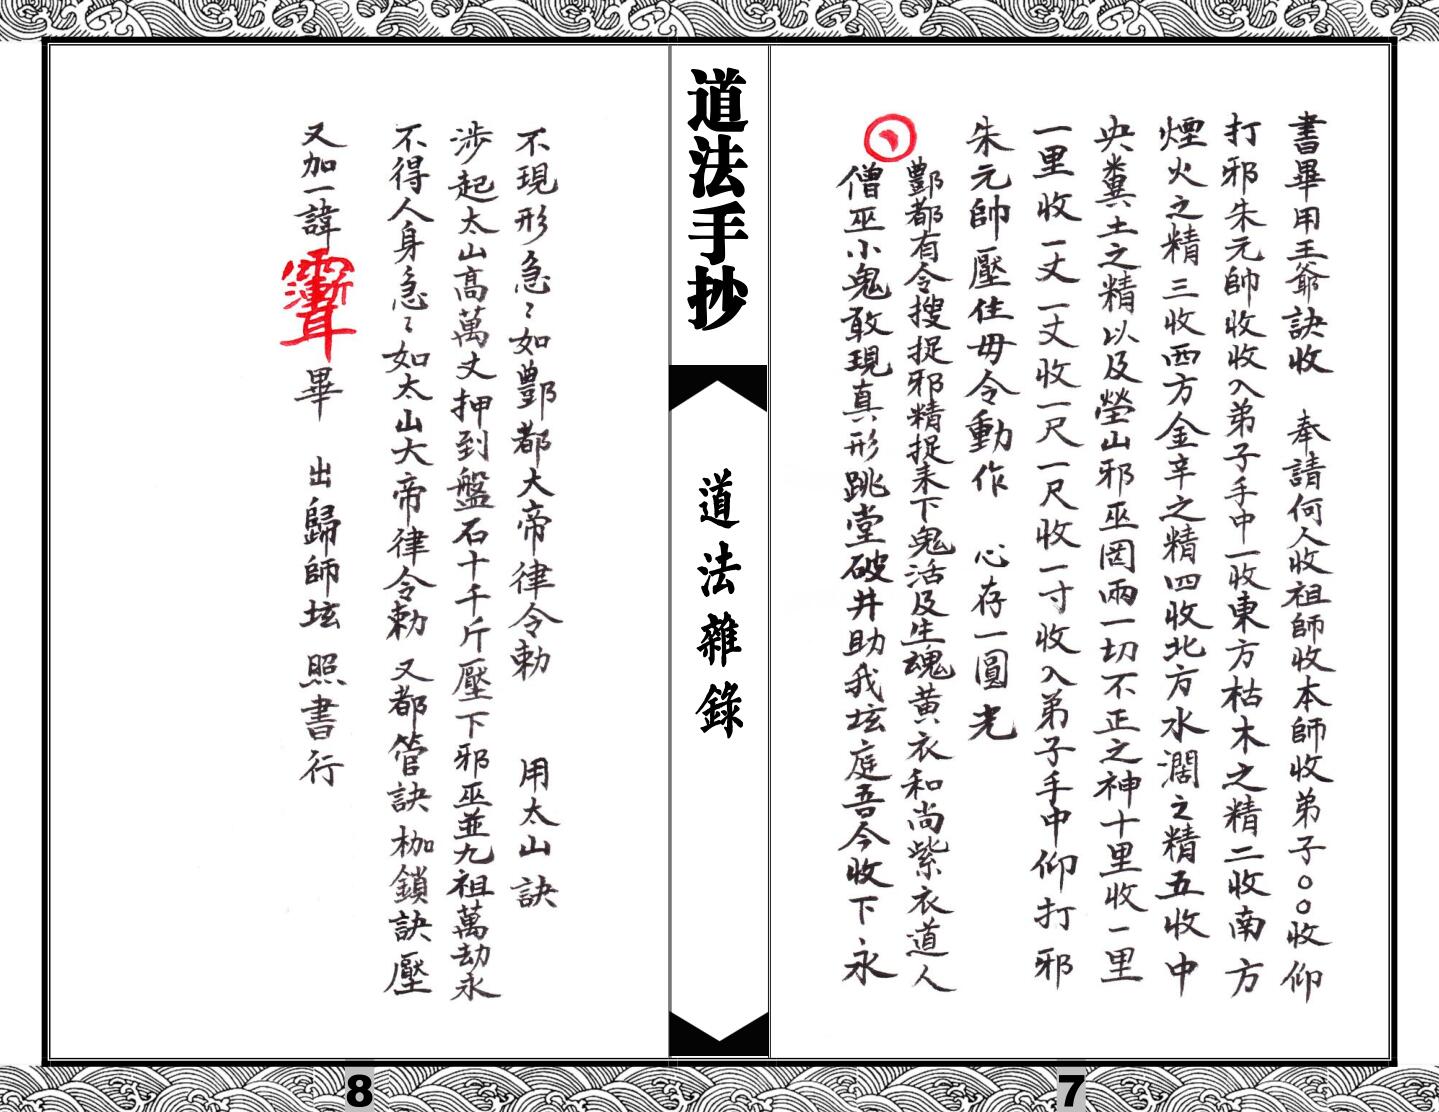 書畢用王爺訣收 奉請何人收祖師收本師收弟子○○收仰
打邪朱元帥收收入弟子手中一收東方枯木之精二收南方
煙火之精三收西方金辛之精四收北方水濶之精五收中
央糞土之精以及塋山邪巫罔兩一切不正之神十里收一里
一里收一丈一丈收一尺一尺收一寸收入弟子手中仰打邪
朱元帥壓住毋令動作 心存一圓光
酆都有令搜捉邪精捉来下鬼活及生魂黄衣和尚紫衣道人
僧巫小鬼敢現真形跳堂破井助我坛庭吾今收下永
道法手抄
道法雜錄
不現形急〻如酆都大帝律令勅 用太山訣
涉起太山高萬丈押到盤石十千斤壓下邪巫並九祖萬劫永
不得人身急〻如太山大帝律令勅 又都管訣枷鎖訣壓
又加一諱 畢 出歸師坛 照書行
8
7